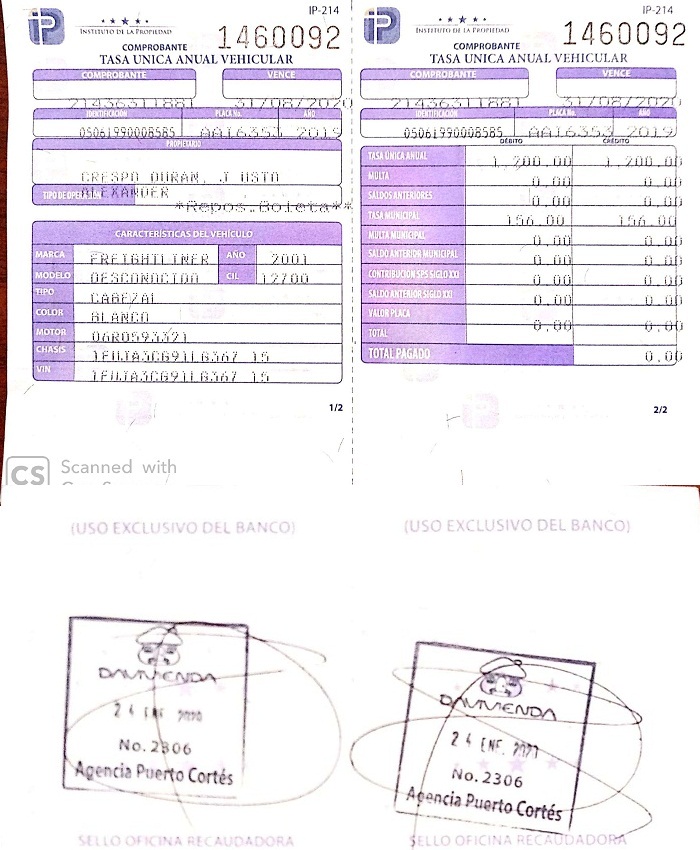 iP
INSTITUTO DE LA PROPIEDAD
IP-214
1460092
COMPROBANTE
TASA UNICA ANUAL VEHICULAR
COMPROBANTE VENCE
21436311881 31/08/2020
IDENTIFICACIÓN PLACA No. AÑO
05061990008585 AAI6353 2019
PROPIETARIO
CRESPO DURAN, J USTO
ALEXANDER
TIPO DE OPERACIÓN
*Repos.Boleta**
CARACTERÍSTICAS DEL VEHÍCULO
MARCA FREIGHTLINER AÑO 2001
MODELO DESCONOCIDO CIL 12700
TIPO CABEZAL
COLOR BLANCO
MOTOR 06R0593321
CHASIS 1FUJA3CG91LG367 15
VIN 1FUJA3CG91LG367 15
1/2
CS Scanned with
iP
INSTITUTO DE LA PROPIEDAD
IP-214
1460092
COMPROBANTE
TASA UNICA ANUAL VEHICULAR
COMPROBANTE VENCE
21436311881 31/08/2020
IDENTIFICACIÓN PLACA No. AÑO
05061990008585 AAI6353 2019
DÉBITO CRÉDITO
TASA UNICA ANUAL 1,200.00 1,200.00
MULTA 0.00 0.00
SALDOS ANTERIORES 0.00 0.00
TASA MUNICIPAL 156.00 156.00
MULTA MUNICIPAL 0.00 0.00
SALDO ANTERIOR MUNICIPAL 0.00 0.00
CONTRIBUCION SPS SIGLO XXI 0.00 0.00
SALDO ANTERIOR SIGLO XXI 0.00 0.00
VALOR PLACA
TOTAL 0.00 0.00
TOTAL PAGADO 0.00
2/2
(USO EXCLUSIVO DEL BANCO)
DAVIVIENDA
24 ENE 2020
No. 2306
Agencia Puerto Cortés
SELLO OFICINA RECAUDADORA
(USO EXCLUSIVO DEL BANCO)
DAVIVIENDA
24 ENE. 2020
No. 2306
Agencia Puerto Cortés
SELLO OFICINA RECAUDADORA